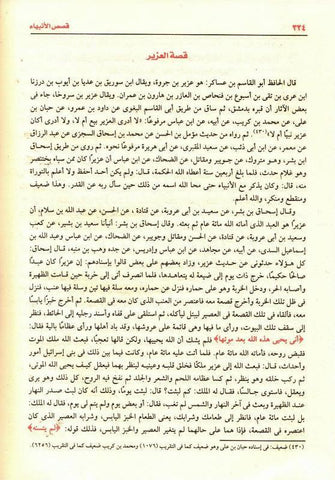 ٣٣٤
قصص الأنبياء
قصة العزير
قال الحافظ أبو القاسم بن عساكر: هو عزير بن جروة، ويقال ابن سوريق بن عديا بن أيوب بن درزنا
ابن عرى بن تقى بن أسبوع بن فنحاص بن العازر بن هارون بن عمران. ويقال عزير بن سروخا، جاء فى
بعض الآثار أن قبره بدمشق، ثم ساق من طريق أبى القاسم البغوى عن داود بن عمرو، عن حبان بن
على، عن محمد بن كريب، عن أبيه، عن ابن عباس مرفوعًا: «لا أدرى العزير بيع أم لا، ولا أدرى أكان
عزير نبيًا أم لا»(٤٣٠). ثم رواه من حديث مؤمل بن الحسن عن محمد بن إسحاق السجزى عن عبد الرزاق
عن معمر، عن ابن أبى ذئب، عن سعيد المقبرى، عن أبى هريرة مرفوعًا نحوه. ثم روى من طريق إسحاق
ابن بشر، وهو متروك، عن جويبر ومقاتل، عن الضحاك، عن ابن عباس أن عزيرًا كان من سباه بختنصر
وهو غلام حدث، فلما بلغ أربعين سنة أعطاه الله الحكمة. قال: ولم يكن أحد أحفظ ولا أعلم بالتوراة
منه، قال: وكان يذكر مع الأنبياء حتى محا الله اسمه من ذلك حين سأل ربه عن القدر. وهذا ضعيف
ومنقطع ومنكر، والله أعلم.
وقال إسحاق بن بشر، عن سعيد بن أبى عروبة، عن قتادة، عن الحسن، عن عبد الله بن سلام، أن
عزيرًا هو العبد الذى أماته الله مائة عام ثم بعثه. وقال إسحاق بن بشر: أنبأنا سعيد بن بشير، عن كعب
وسعيد بن أبى عروبة، عن قتادة، عن الحسن ومقاتل وجويبر، عن الضحاك، عن ابن عباس وعبد الله بن
إسماعيل السدى، عن أبيه، عن مجاهد، عن ابن عباس وإدريس، عن جده وهب بن منبه، قال إسحاق:
كل هؤلاء حدثونى عن حديث عزير، وزاد بعضهم على بعض قالوا بإسنادهم: إن عزيرًا كان عبدًا
صالحًا حكيمًا، خرج ذات يوم إلى ضيعة له يتعاهدها، فلما انصرف أتى إلى خربة حين قامت الظهيرة
وأصابه الحر، ودخل الخربة وهو على حماره فنزل عن حماره، ومعه سلة فيها تين وسلة فيها عنب، فنزل
فى ظل تلك الخربة وأخرج قصعة معه فاعتصر من العنب الذى كان معه فى القصعة. ثم أخرج خبزًا يابسًا
معه، فألقاه فى تلك القصعة فى العصير ليبتل ليأكله، ثم استلقى على قفاه وأسند رجليه إلى الحائط، فنظر
إلى سقف تلك البيوت، ورأى ما فيها وهى قائمة على عروشها، وقد باد أهلها ورأى عظامًا بالية فقال:
﴿أنى يحيى هذه الله بعد موتها﴾ فلم يشك أن الله يحييها، ولكن قالها تعجبًا، فبعث الله ملك الموت
فقبض روحه، فأماته الله مائة عام. فلما أتت عليه مائة عام، وكانت فيما بين ذلك فى بنى إسرائيل أمور
وأحداث. قال: فبعث الله إلى عزير ملكًا فخلق قلبه ليعقل به وعينيه لينظر بهما فيعقل كيف يحيى الله الموتى،
ثم ركب خلقه وهو ينظر، ثم كسا عظامه اللحم والشعر والجلد، ثم نفخ فيه الروح، كل ذلك وهو يرى
ويعقل، فاستوى جالسًا، فقال له الملك: كم لبثت؟ قال: لبثت يومًا، وذلك أنه كان لبث صدر النهار
عند الظهيرة وبعث فى آخر النهار والشمس لم تغب، فقال: أو بعض يوم ولم يتم لى يوم. فقال له الملك:
بل لبثت مائة عام، فانظر إلى طعامك وشرابك، يعنى الطعام الخبز اليابس، وشرابه العصير الذى كان
اعتصره فى القصعة، فإذا هما على حالهما لم يتغير العصير والخبز اليابس، فذلك قوله: ﴿لم يتسنه﴾
(٤٣٠) ضعيف: فى إسناده حبان بن على وهو ضعيف كما فى التقريب (١٠٧٦) ومحمد بن كريب ضعيف كما فى التقريب (٦٢٥٦)